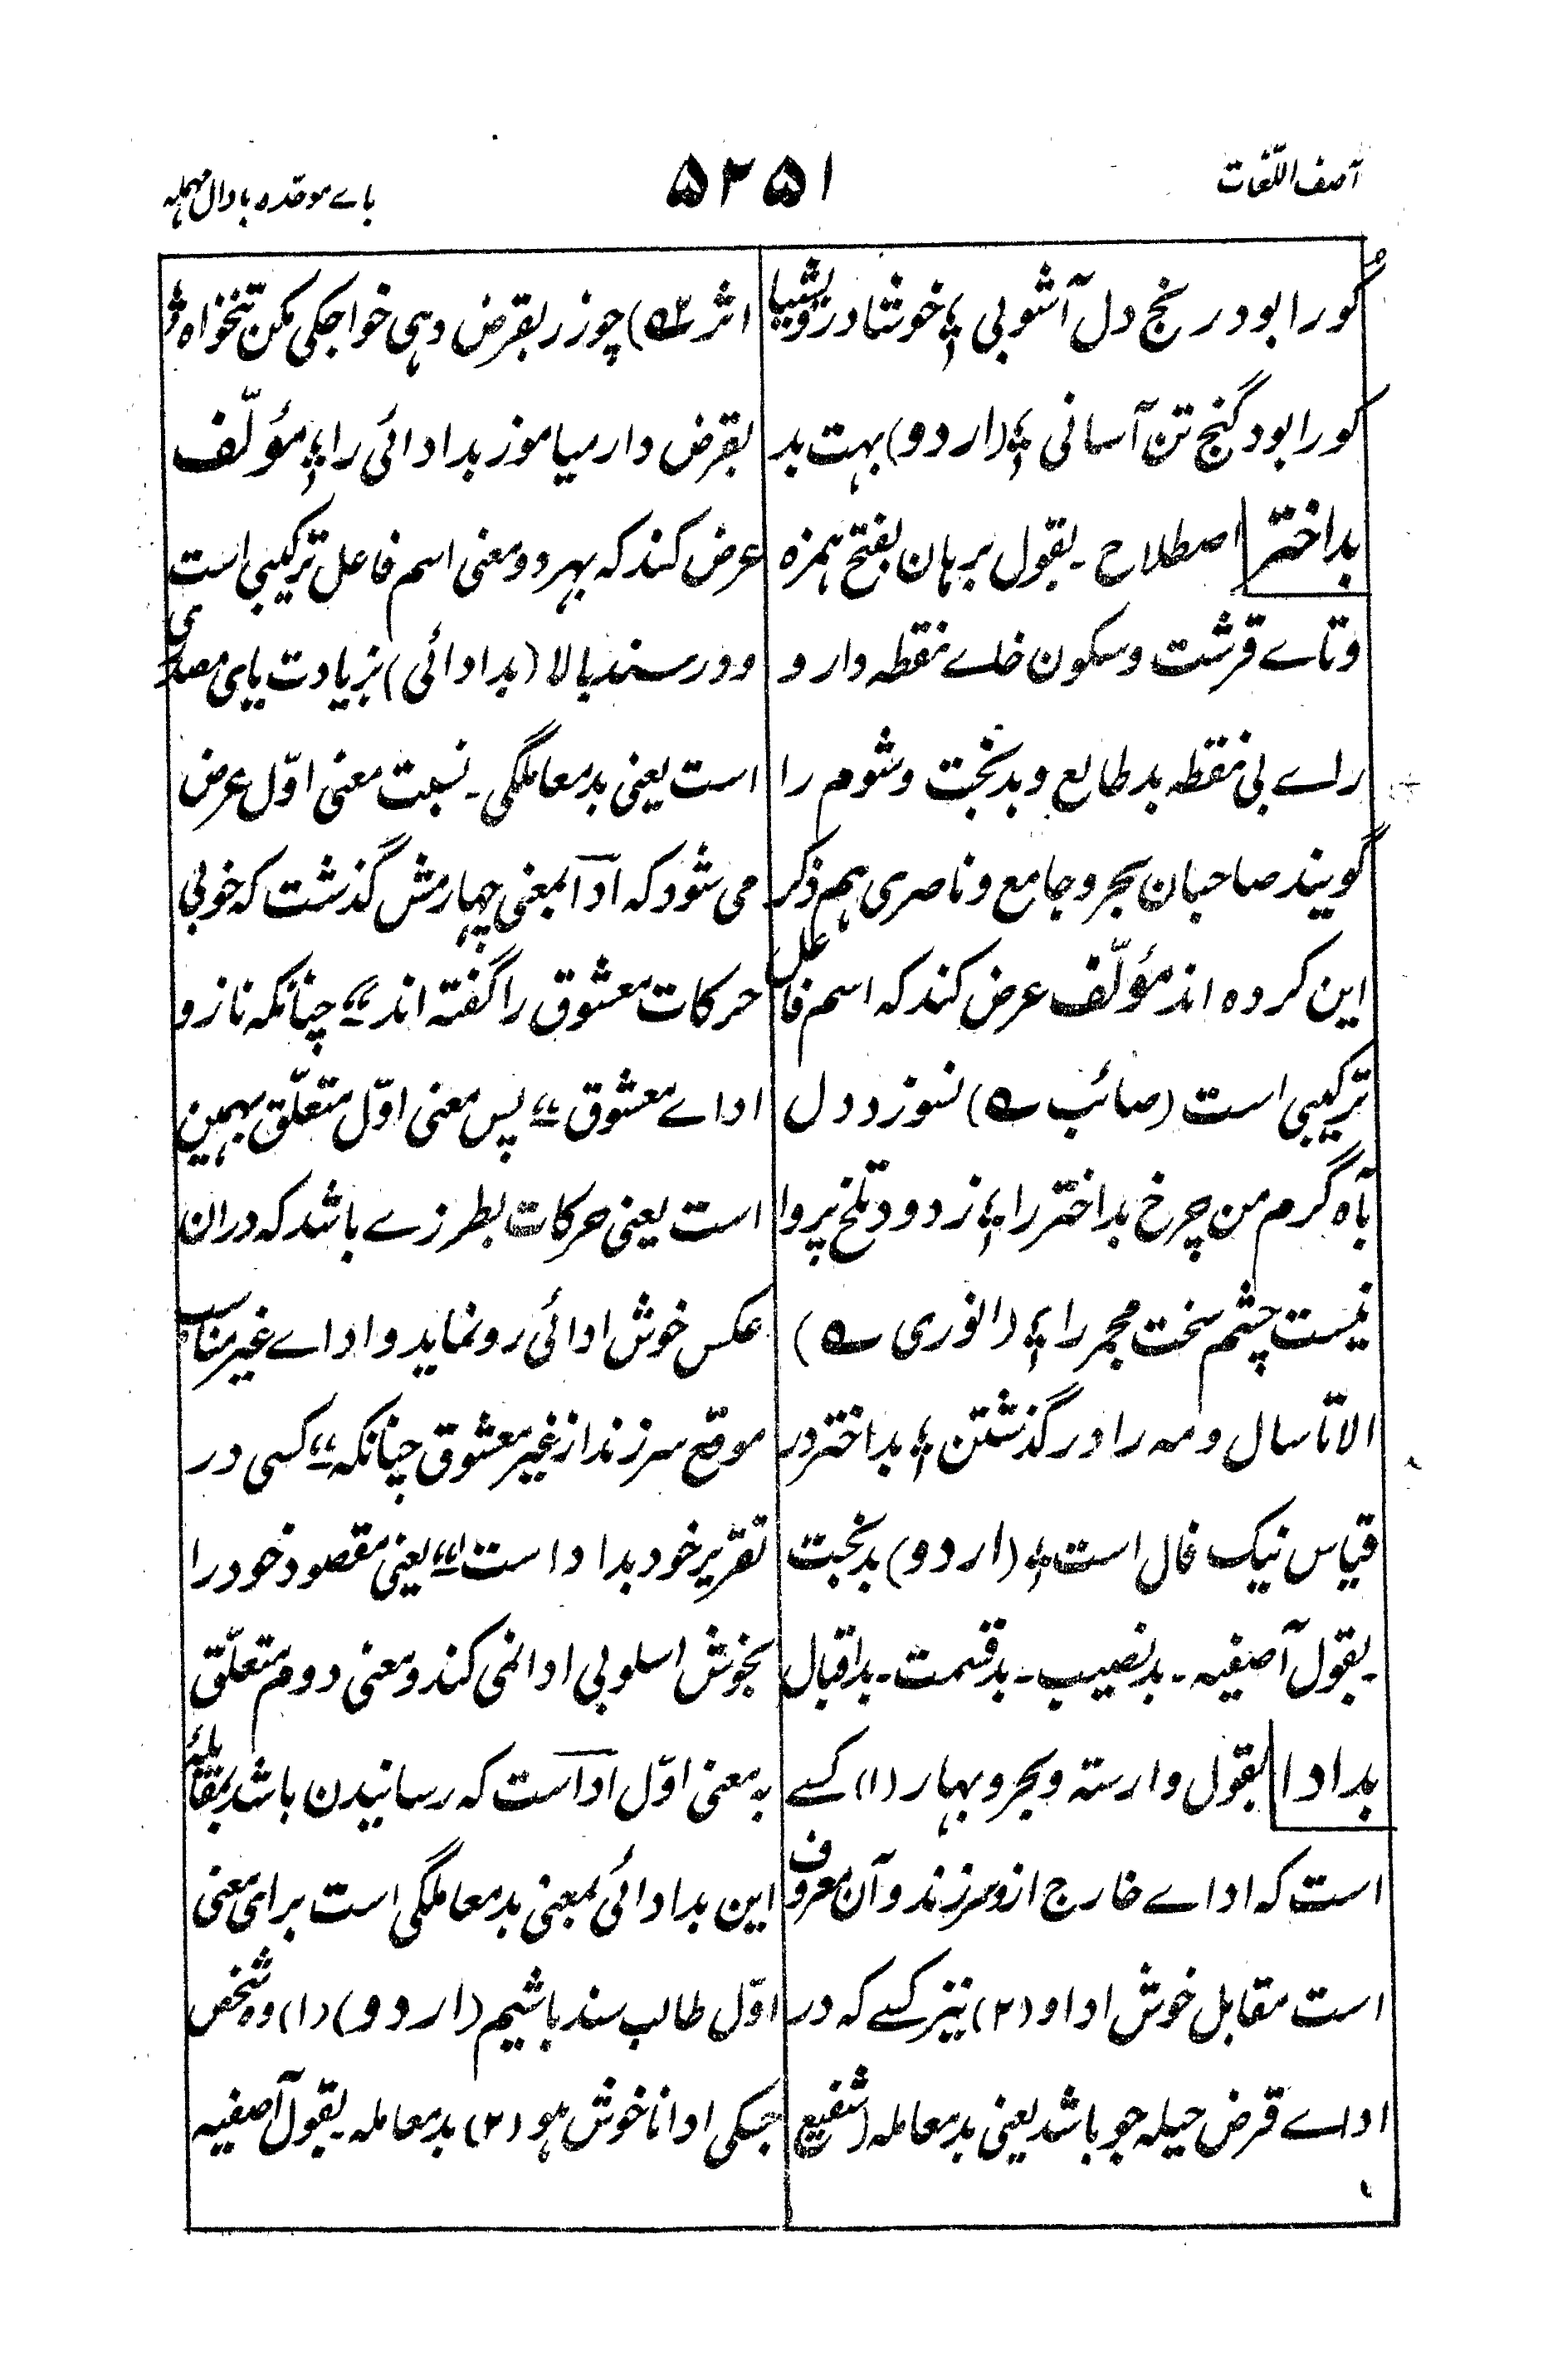 آصف اللّغات
۵۲۵۱
باے موحّدہ با دال مہملہ
کو را بود رنج دل آشوبی ؛ خوشا درویشیا
کو را بود گنج تن آسانی ؛ (اردو) بہت بد
بداختر اصطلاح ۔ بقول برہان بفتح ہمزہ
و تاے قرشت و سکون خاے نقطہ دار و
راے بی نقطہ بد طالع و بدبخت و شوم را
گویند صاحبان بحر و جامع و ناصری ہم ذکر
این کردہ اند مؤلّف عرض کند کہ اسم فاعل
ترکیبی است (صائب ؎) نسوزد دل
بآہ گرم من چرخ بداختر را ؛ ز دود تلخ پروا
نیست چشم سخت مجمر را ؛ (انوری ؎)
الا تا سال و مہ را در گذشتن ؛ بداختر در
قیاس نیک فال است ؛ (اردو) بدبخت
۔ بقول آصفیہ ۔ بدنصیب ۔ بدقسمت ۔ بداقبال
بدادا بقول وارستہ و بحر و بہار (۱) کسے
است کہ اداے خارج ازو سر زند و آن معروف
است مقابل خوش ادا و (۲) نیز کسے کہ در
اداے قرض حیلہ جو باشد یعنی بد معاملہ (شفیع
اثر ؎) چو زر بقرض دہی خواجگی مکن تنخواہ ؛
بقرض دار میاموز بدادائی را ؛ مؤلّف
عرض کند کہ بہر دو معنی اسم فاعل ترکیبی است
و در سند بالا (بدادائی) بزیادت یای مصدری
است یعنی بدمعاملگی ۔ نسبت معنی اوّل عرض
می شود کہ ادا بمعنی چہارمش گذشت کہ خوبی
حرکات معشوق را گفتہ اند ؛؛ چنانکہ ناز و
اداے معشوق ؛؛ پس معنی اوّل متعلّق بہمین
است یعنی حرکات بطرزے باشد کہ دران
عکس خوش ادائی رو نماید و اداے غیر مناسب
موقع سر زند از غیر معشوق چنانکہ ؛؛ کسی در
تقریر خود بدادا است ؛؛ یعنی مقصود خود را
بخوش اسلوبی ادا نمی کند و معنی دوم متعلّق
بہ معنی اوّل ادا ست کہ رسانیدن باشد بمقابلۂ
این بدادائی بمعنی بدمعاملگی است برای معنی
اوّل طالب سند باشیم (اردو) (۱) وہ شخص
جسکی ادا ناخوش ہو (۲) بدمعاملہ ۔ بقول آصفیہ